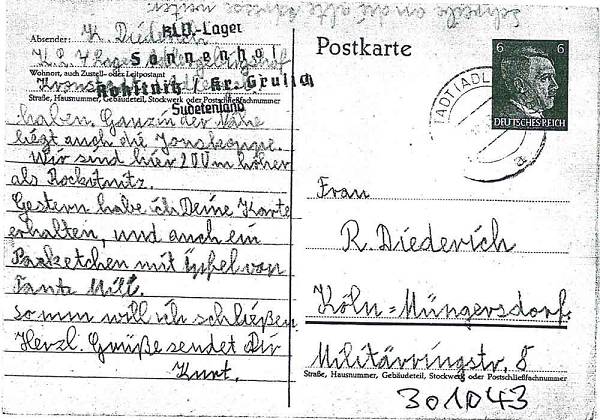 Schreibe an die alte Adresse weiter.
Absender: K. Diederich
KLV.-Lager
K.L.V. Lager
Sonnenhof
Wohnort, auch Zustell- oder Leitpostamt
Rokitnitz / Kr. Grulich
Straße, Hausnummer, Gebäudeteil, Stockwerk oder Postschließfachnummer
Sudetenland
haben. Ganz in der Nähe
liegt auch die
Wir sind hier 200 m höher
als Rockitnitz.
Gestern habe ich Deine Karte
erhalten, und auch ein
Paketchen mit Äpfel von
Tante Mill.
So nun will ich schließen.
Herzl. Grüße sendet Dir
Kurt.
Postkarte
6 6
DEUTSCHES REICH
STADT (ADL
a
Frau
R. Diederich
Köln=Müngersdorf.
Militärringstr. 8
Straße, Hausnummer, Gebäudeteil, Stockwerk oder Postschließfachnummer
301043